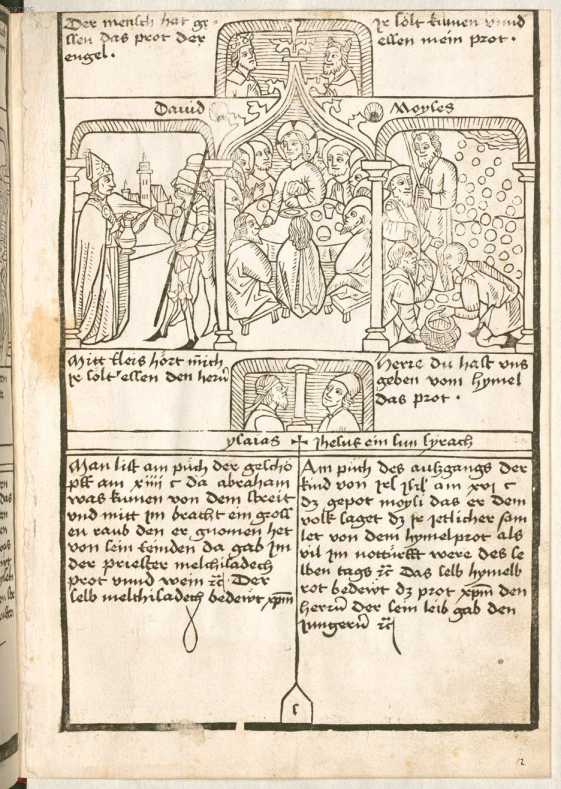 Der mensch hat ge-
ssen das prot der
engel.
Ir sölt kumen vnnd
essen mein prot.
Dauid
Moyses
Mitt fleis hört mich
ir sölt essen den herrn
Herre du hast vns
geben vom hymel
das prot.
ysaias
Jhesus ein sun syrach
Man list am püch der geschö
pff am xiiii c da abraham
was kumen von dem streit
vnnd mitt im bracht ein gross
en raub den er gnomen het
von sein feinden da gab im
der priester melchisadech
prot vnnd wein rc̄ Der
selb melchisadech bedewt xp̄m
Am püch des auszgangs der
kind von isrl am xvi c
dz gepot moysi das er dem
volk saget dz ir ietlicher sam
let von dem hymelprot als
vil im nottürfft were des se
lben tags rc̄ Das selb hymelb
rot bedewt dz prot xp̄m den
herrn der sein leib gab den
Jungern rc̄
s
12